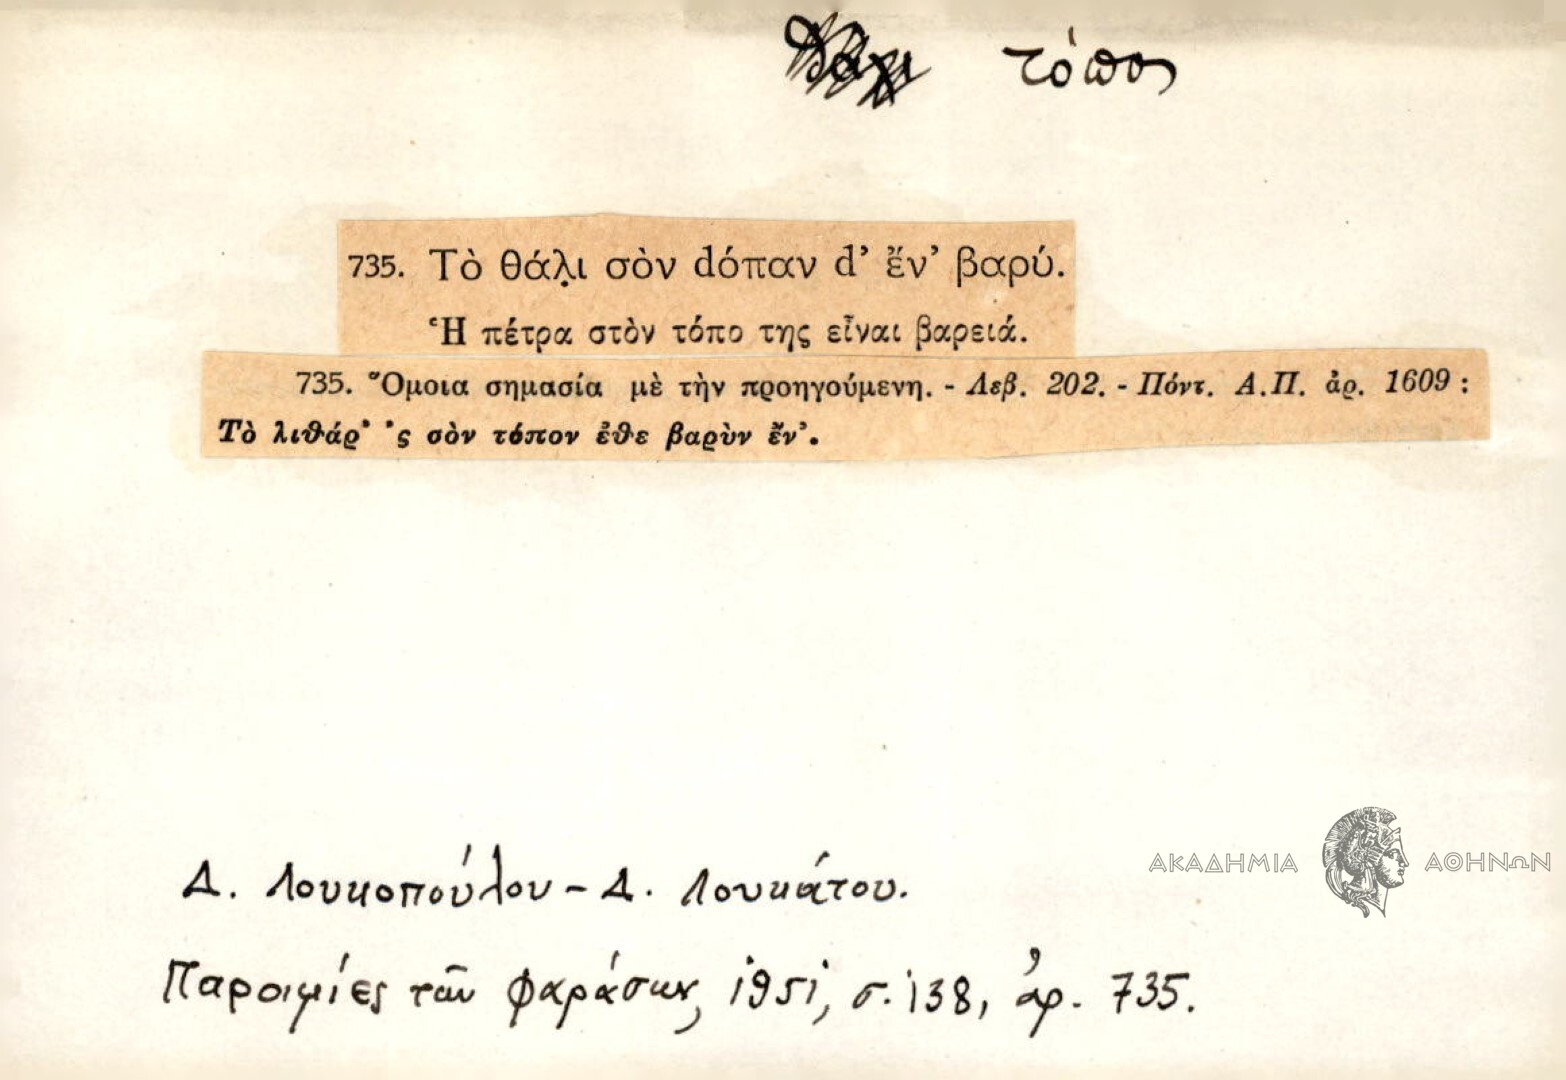 τόπος
735. Τὸ θάλ̣ι σὸν dόπαν d’ ἔν’ βαρύ.
Ἡ πέτρα στὸν τόπο της εἶναι βαρειά.
735. Ὅμοια σημασία μὲ τὴν προηγούμενη. - Λεβ. 202. - Πόντ. Α.Π. ἀρ. 1609 :
Τὸ λιθάρ’ ’ς σὸν τόπον ἐθε βαρὺν ἔν’.
Δ. Λουκοπούλου - Δ. Λουκάτου.
Παροιμίες τῶν Φαράσων, 1951, σ. 138, ἀρ. 735.
ΑΚΑΔΗΜΙΑ ΑΘΗΝΩΝ